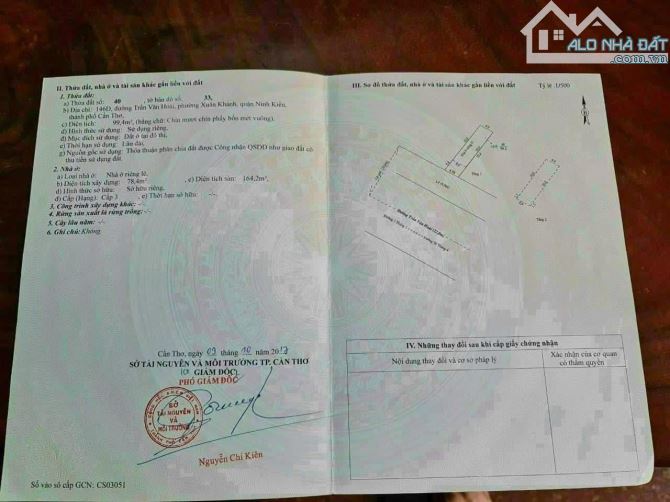 ALO NHÀ ĐẤT
II. Thửa đất, nhà ở và tài sản khác gắn liền với đất
1. Thửa đất:
a) Thửa đất số: 40 tờ bản đồ số: 33,
b) Địa chỉ: 146D, đường Trần Văn Hoài, phường Xuân Khánh, quận Ninh Kiều,
thành phố Cần Thơ,
c) Diện tích: 99,4m², (bằng chữ: Chín mươi chín phẩy bốn mét vuông),
d) Hình thức sử dụng: Sử dụng riêng,
đ) Mục đích sử dụng: Đất ở tại đô thị,
e) Thời hạn sử dụng: Lâu dài,
g) Nguồn gốc sử dụng: Thỏa thuận phân chia đất được Công nhận QSDĐ như giao đất có
thu tiền sử dụng đất.
2. Nhà ở:
a) Loại nhà ở: Nhà ở riêng lẻ,
b) Diện tích xây dựng: 78,4m², c) Diện tích sàn: 164,2m²,
d) Hình thức sở hữu: Sở hữu riêng,
đ) Cấp (Hạng): Cấp 3 e) Thời hạn sở hữu: -/-
3. Công trình xây dựng khác: -/-
4. Rừng sản xuất là rừng trồng: -/-
5. Cây lâu năm: -/-
6. Ghi chú: Không.
Cần Thơ, ngày 09 tháng 10 năm 2017
SỞ TÀI NGUYÊN VÀ MÔI TRƯỜNG TP. CẦN THƠ
GIÁM ĐỐC
PHÓ GIÁM ĐỐC
SỞ
TÀI NGUYÊN
VÀ
MÔI TRƯỜNG
Nguyễn Chí Kiên
Số vào sổ cấp GCN: CS03051
III. Sơ đồ thửa đất, nhà ở và tài sản khác gắn liền với đất
Tỷ lệ 1/500
IV. Những thay đổi sau khi cấp giấy chứng nhận
Nội dung thay đổi và cơ sở pháp lý
Xác nhận của cơ quan
có thẩm quyền